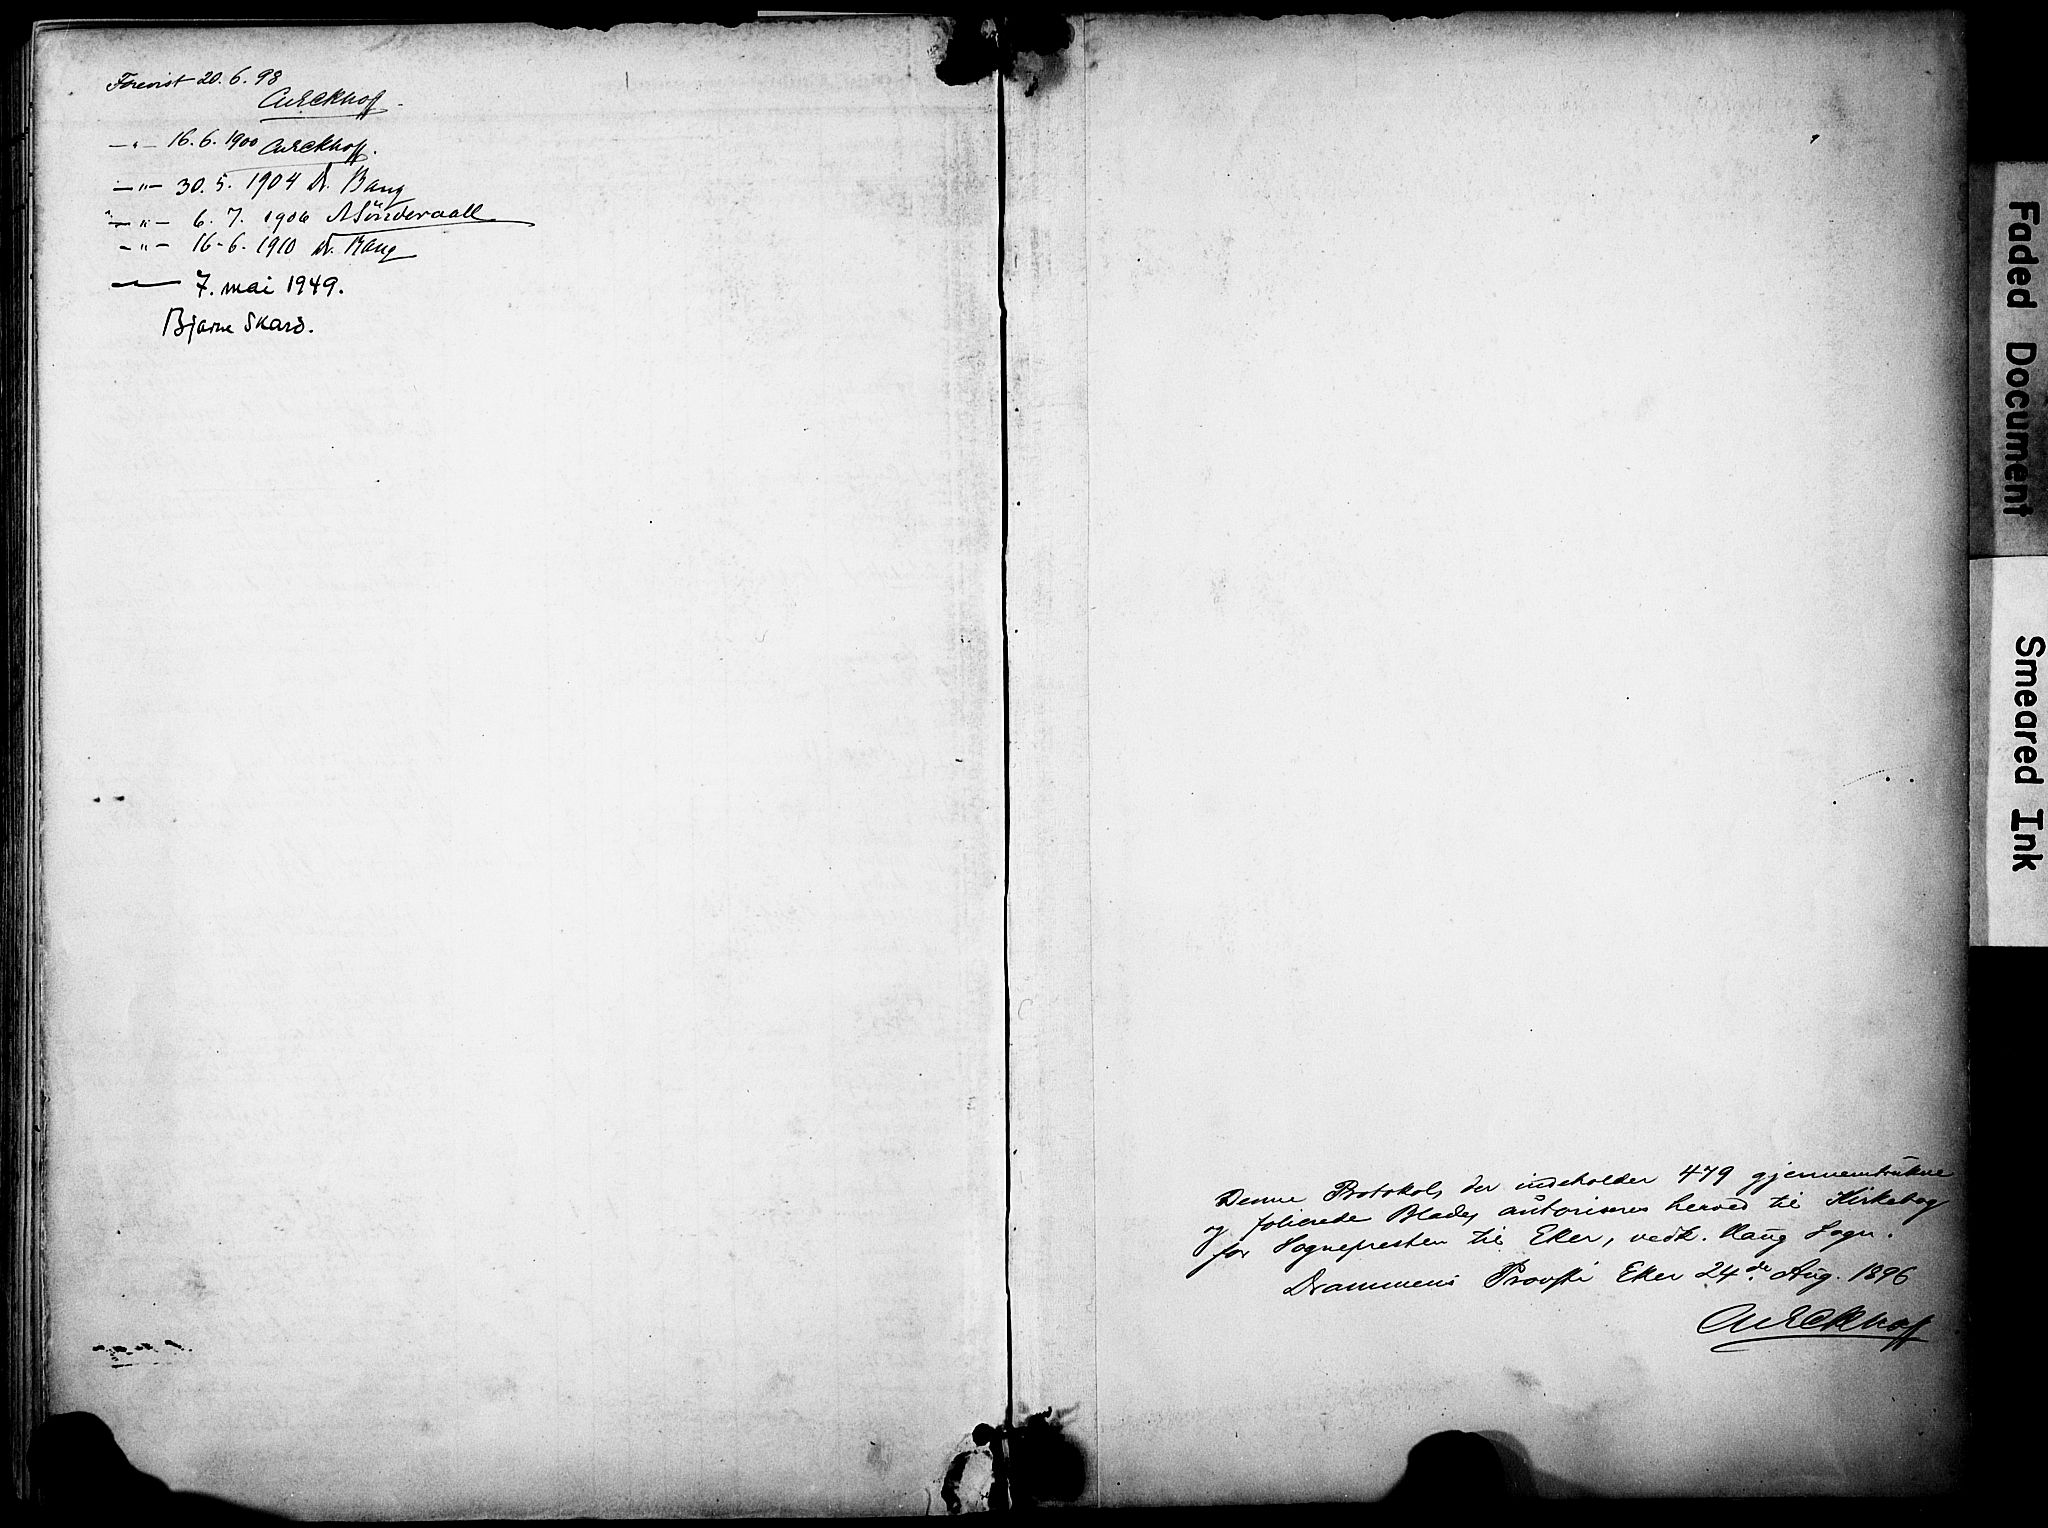 Forevist 20.6.98
CuEckhoff.
— " — 16.6.1900 CuEckhoff.
— " — 30.5.1904 Dr. Bang
— " — 6.7.1906 ASöndervall
— " — 16-6.1910 Dr. Bang
—— 7. mai 1949.
Bjarne Skard.
Denne Protokol, der indeholder 479 gjennemtrukne
og folierede Blade, autoriseres herved til Kirkebog
for Sognepresten til Eker, vedk. Haug Sogn.
Drammens Provsti Eker 24de Aug. 1896
CuEckhoff
Faded Document
Smeared Ink